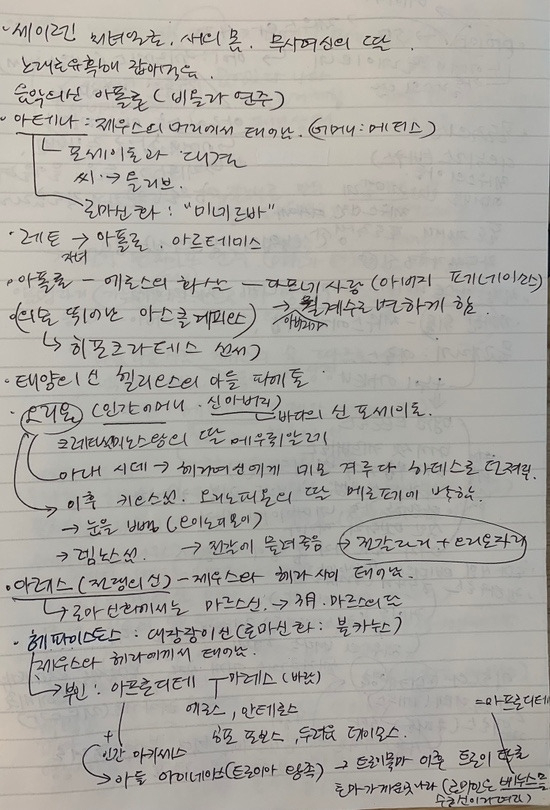 · 세이렌 미녀얼굴, 새의 몸. 무사여신의 딸.
노래로 유혹해 잡아먹음.
음악의신 아폴론 (비올라 연주)
· 아테나 : 제우스의 머리에서 태어남. (어머니 : 메티스)
포세이돈과 대결
씨 → 올리브.
로마신화 : "미네르바"
· 레토 → 아폴론. 아르테미스
자녀
· 아폴론 - 에로스의 화살 - 다프네 사랑 (아버지 페네이오스)
(의술 뛰어난 아스클레피오스) → 월계수로 변하게 함.
아버지가
↳ 히포크라테스 선서)
· 태양의 신 헬리오스의 아들 파에톤
· 오리온 (인간어머니, 신아버지) 바다의 신 포세이돈.
크레타섬미노스왕의 딸 에우뤼알레
아내 시데 → 헤라여신에게 미모 겨루다 하데스로 던져짐.
이후 키오스섬. 오이노피온의 딸 메로페에 반함.
→ 눈을 뽑힘 (오이노피온이)
→ 렘노스섬. → 전갈에 물려죽음 → 전갈자리 + 오리온자리
· 아레스 (전쟁의 신) - 제우스와 헤라 사이 태어남.
↳ 로마신화에서는 마르스신. → 3月. 마르스의 달
· 헤파이스토스 : 대장장이신 (로마신화 : 불카누스)
제우스와 헤라에게서 태어남.
→ 부인 : 아프로디테 아레스 (바람)
에로스, 안테로스
공포 포보스, 두려움 데이모스. = 아프로디테
+
인간 안키세스
→ 아들 아이네이아스 (트로이아 왕족) → 트로이목마 이후 트로이 탈출
로마가 세운 나라 (로마인은 베누스를
수호신이라 여김)